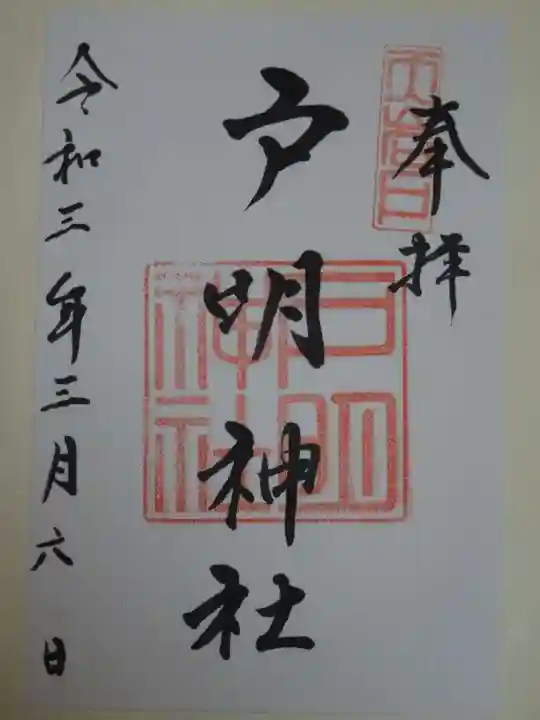 奉拝
戸明神社
戸明
神社
令和三年三月六日